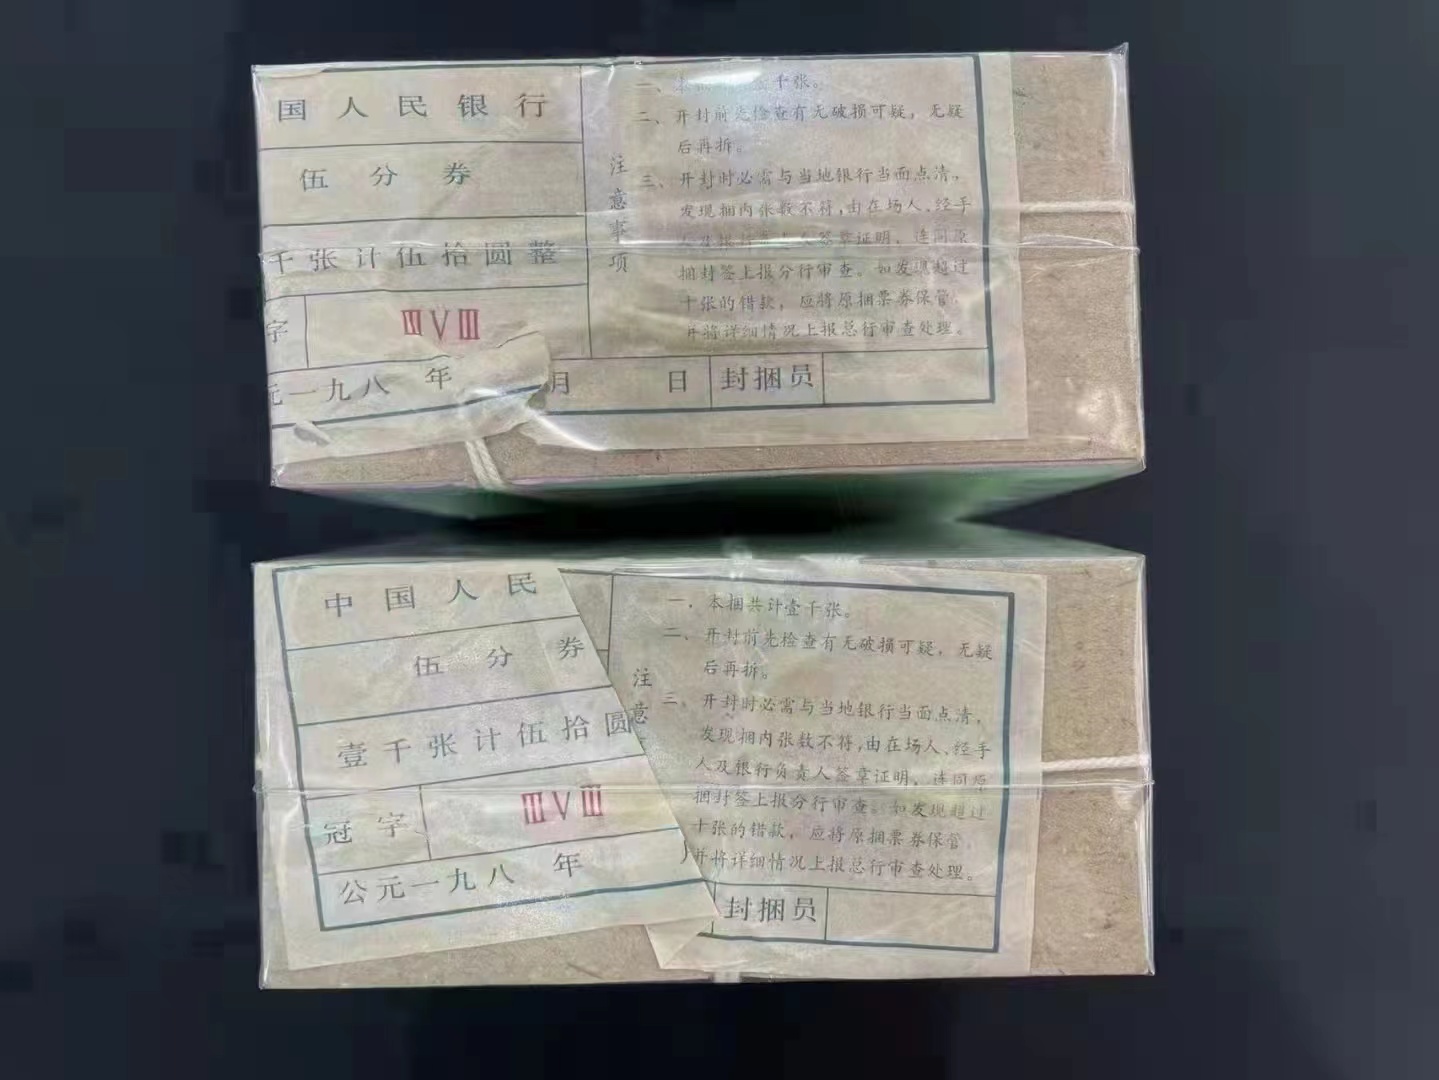 国人民银行
伍分券
千张计伍拾圆整
字 ⅢⅤⅢ
元一九八 年 月 日 封捆员
注意事项
一、 千张。
二、开封前先检查有无破损可疑，无疑
后再拆。
三、开封时必需与当地银行当面点清，
发现捆内张数不符，由在场人、经手
人及银行 签章证明，连同原
捆封签上报分行审查。如发现超过
十张的错款，应将原捆票券保管，
并将详细情况上报总行审查处理。
中国人民
伍分券
壹千张计伍拾圆
冠字 ⅢⅤⅢ
公元一九八 年
注意
一、本捆共计壹千张。
二、开封前先检查有无破损可疑，无疑
后再拆。
三、开封时必需与当地银行当面点清，
发现捆内张数不符，由在场人、经手
人及银行负责人签章证明，连同原
捆封签上报分行审查。如发现超过
十张的错款，应将原捆票券保管，
并将详细情况上报总行审查处理。
封捆员